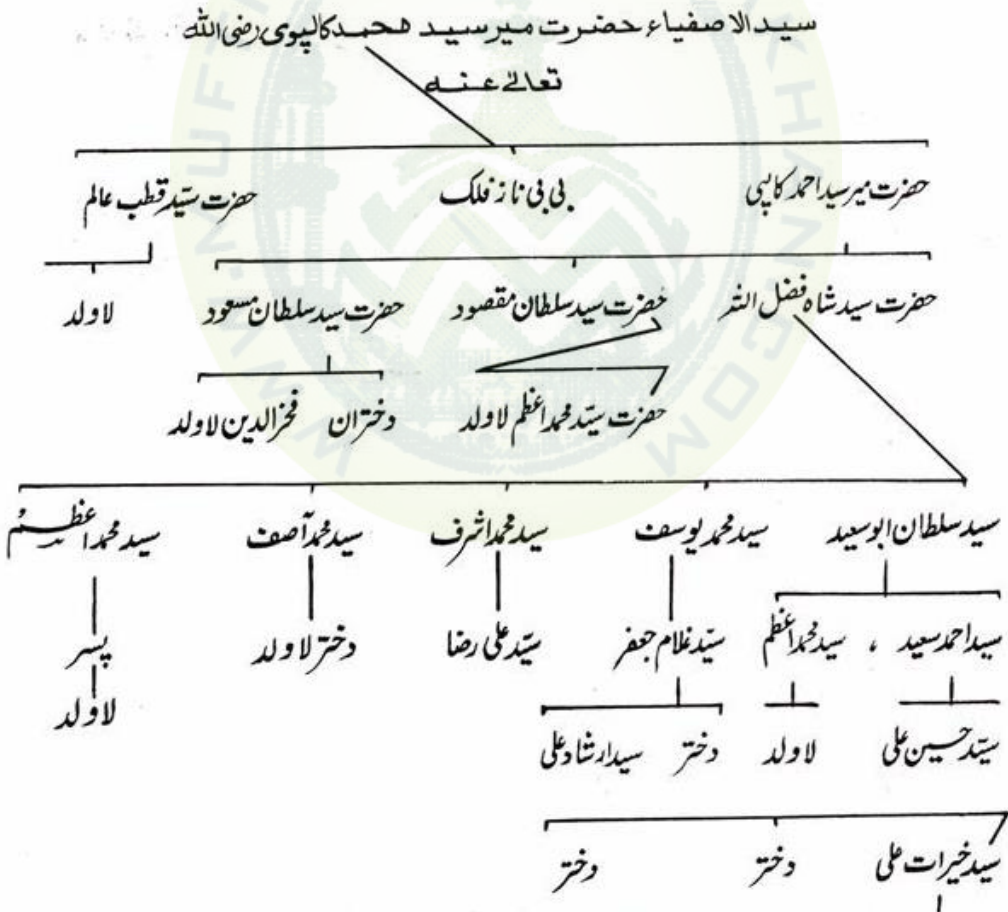 سید الاصفیاء حضرت میر سید محمد کالپوی رضی اللہ
تعالےٰ عنہ
حضرت میر سید احمد کالپی بی بی ناز فلک حضرت سیّد قطب عالم
حضرت سید شاہ فضل اللہ حضرت سید سلطان مقصود حضرت سید سلطان مسعود لاولد
حضرت سیّد محمد اعظم لاولد دختران فخرالدین لاولد
سید سلطان ابوسعید سید محمد یوسف سید محمد اشرف سید محمد آصف سید محمد اعظم
سید احمد سعید ، سید محمد اعظم سیّد غلام جعفر سیّد علی رضا دختر لاولد پسر
لاولد
سیّد حسین علی لاولد دختر سید ارشاد علی
سید خیرات علی دختر دختر
WWW.NUF KHAN.COM